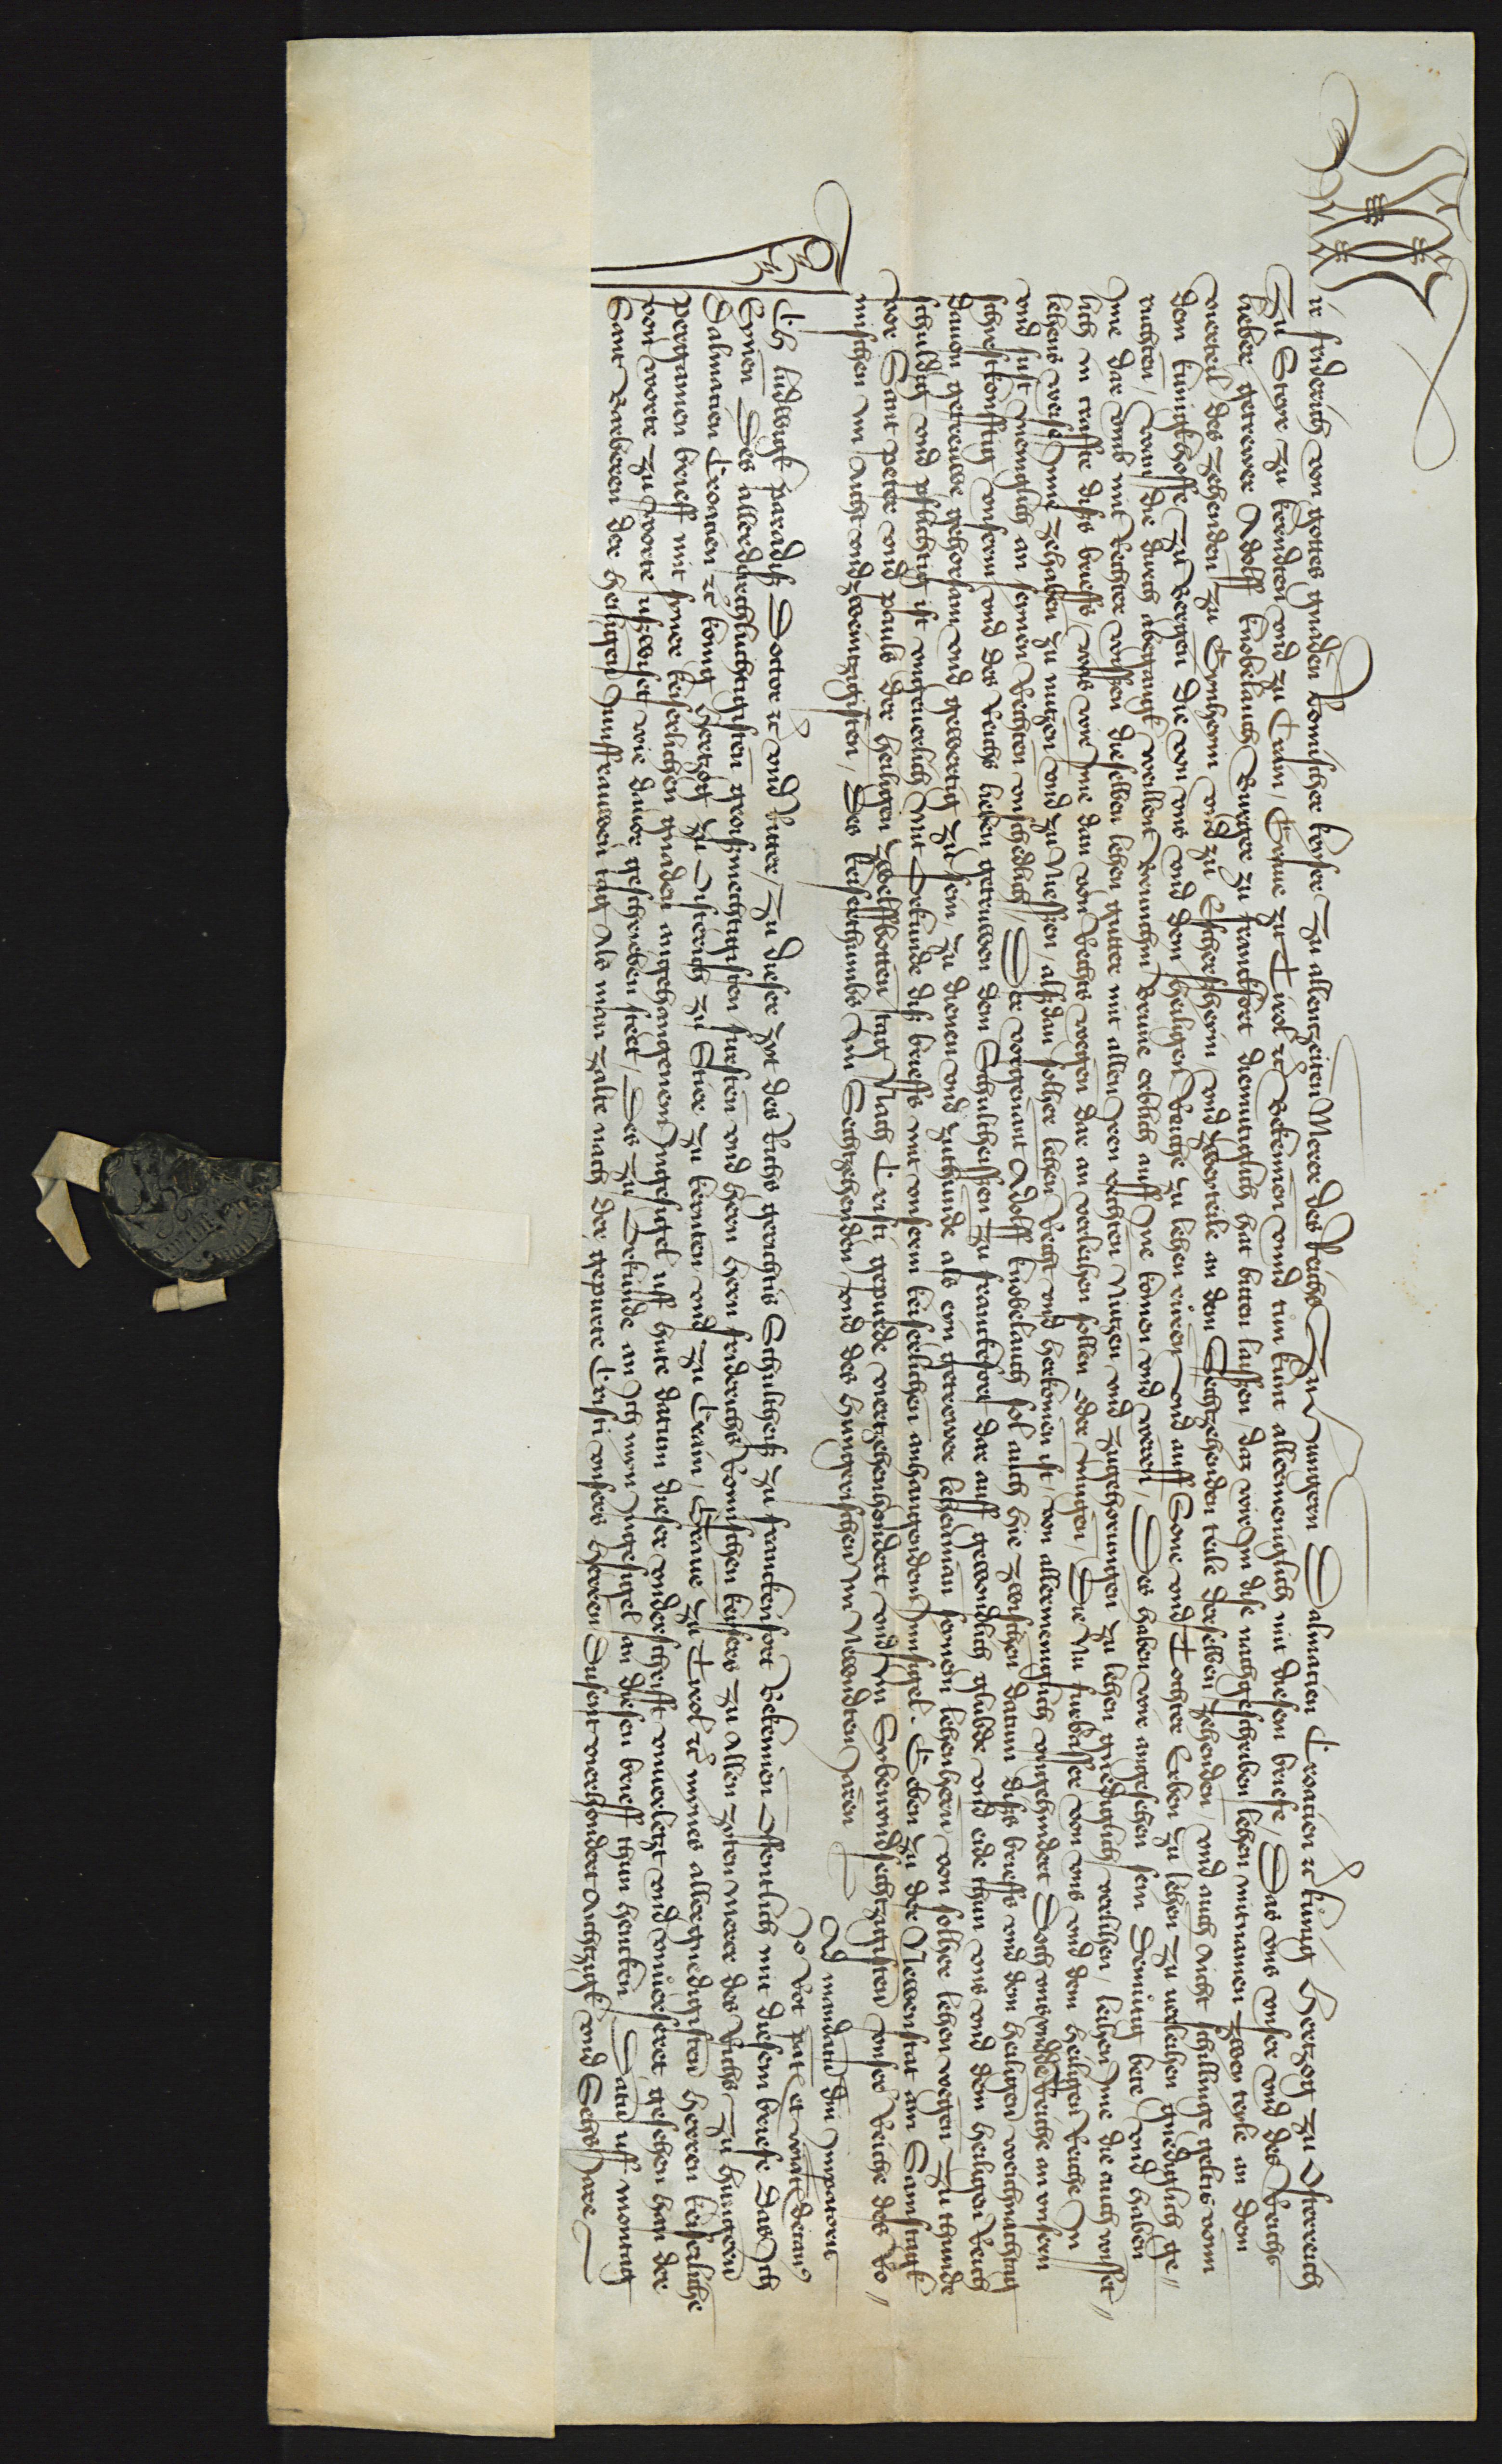 Wir friderich von gottes gnaden Romischer keyser zu allentzeiten Merer des Reichs zu Hungern Dalmatien Croatien ꝛc kunig Hertzog zu Osterreich
zu Steyr zu kerndten vnd zu Crain, Graue zu Tirol ꝛc Bekennen vnnd tun kunt allermeniglich mit diesem briefe, Das vns vnser vnd des Reichs
lieber getrewer Adolff knobelauch Burger zu franckfort diemutiglich hat biten lassen, daz wir Im dise nachgeschriben lehen mitnamen zwen teyle an dem
vierteil des zehenden zu Ginheim vnd zu Eschersheim, vnd zweyteile an dem Sechtzehenden teile derselben zehenden, vnd auch Aicht schillinge geltis vonn
dem kunigkhoffe zu Bergen die von vns vnd dem heiligen Reiche zu lehen rüren vnd auff Sone vnd Tochter Erben zu lehen zu verleihen gnediglich ge-
ruchten, wan die durch abegangk weillent Reinchin Brune erblich auff Ine komen vnd weren, Des haben wir angesehen sein demütig bete vnd haben
Ime dar vmb mit Rechter wissen dieselben lehen gutter mit allen Iren rechten Nutzen vnd zugehorungen zu lehen gnediglich verlihen, leihen Ime die auch wisset-
lich in crafft diss brieffs, was wir Ime dan von Rechts wegen dar an verleihen sollen oder mugen, Die Nu furbasser von vns vnd dem heiligen Reiche In
lehens weise Inne zehaben zu nutzen vnd zu Niessen, alssdan solher lehen Recht vnd herkomen ist, von allermeniglich vngehindert Doch vns vnd dem Reiche an vnsern
vnd sust meniglich an seinen Rechten vnschedlich, Der vorgenant Adolff knobelauch sol auch hie zwischen datum diss brieffs vnd dem heiligen weichnachtag
schirest konfftig vnserm vnd des Reichs lieben getruwen dem Schultheissen zu franckfort dar auff gewondlich glubde vnd eide thun vns vnd dem heiligen Reich
dauon getreuwe gehorsam vnd gewertig zu sein, zu dienen vnd zuthunde als ein getrewer lehenman seinem lehenhern von solher lehen wegen zu thunde
schuldig vnd pflichtig ist vngeuerlich Mit Vrkunde diss brieffs mit vnserm keiserlichen anhangendem Innsigel. Geben zu der Newenstat am Samstagk
vor Sant peter vnd pauls der heiligen zwelffbotten tag Nach Cristi gepurde viertzehenhondert vnd im Sybenvndsechtzigisten vnser Reiche des Ro-
mischen im Aicht vndzweintzigisten, Des keiserthumbs im Sechtzehenden vnd des hungrischen im Newndten Jaren
Ad mandatum dni Imperatoris
Ich ludwigk paradiss Doctor ꝛc vnd Ritter, zu dieser zyt des Richs gerichts Schultheiss zu franckenfort Bekennen Offentlich mit diesem briefe das Ich
Eynen Des allerdurchluchtigisten grossmechtigisten fursten vnd hern hern friderichs Romischen keysers zu Allen zyten merer des Richs zu hungern
Dalmatien Croatien ꝛc konig Hertzog zu Osterich zu Stier zu kernten vnd zu Crain, Graue zu Tirol ꝛc mynes allergnedigisten herren keiserliche
pergamen brieff mit syner keiserlichen gnaden angehangenem Ingesigel uff hute datum dieser vnderschrifft vnuerletzt vnd vnuersert gesehen han der
von worte zu worte ussewiset wie dauor geschrieben stett, Des zu Orkunde an Ich myn Ingesigel an diesen brieff thun hencken, Datum uff montag
Sant Barberen der heiligen Junffrauwen tag Als man zalte nach der gepurte Cristi vnsers Herren Dusent vierhondert Achtzigk vnd Sechs Jare